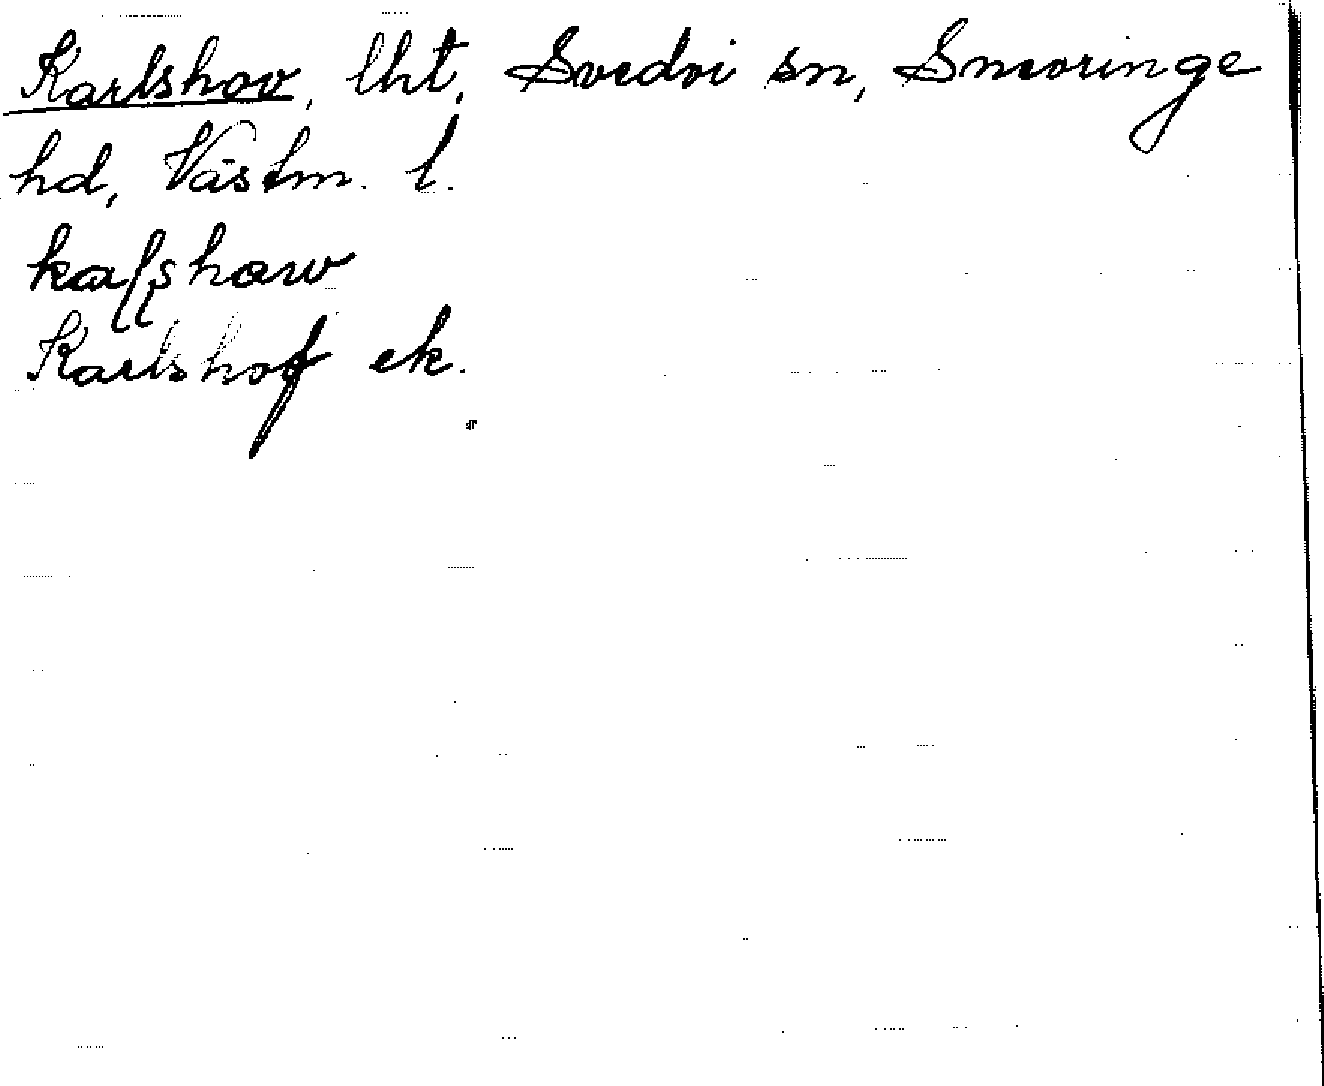 Karlshov, lht, Svedvi sn, Snevringe
hd, Västm. l.
Karlshof ek.